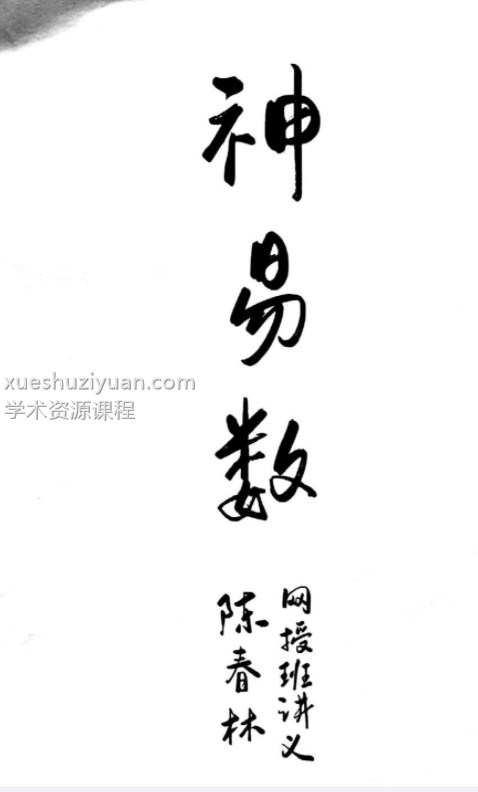 神易数
xueshuziyuan.com
学术资源课程
网授班讲义
陈春林